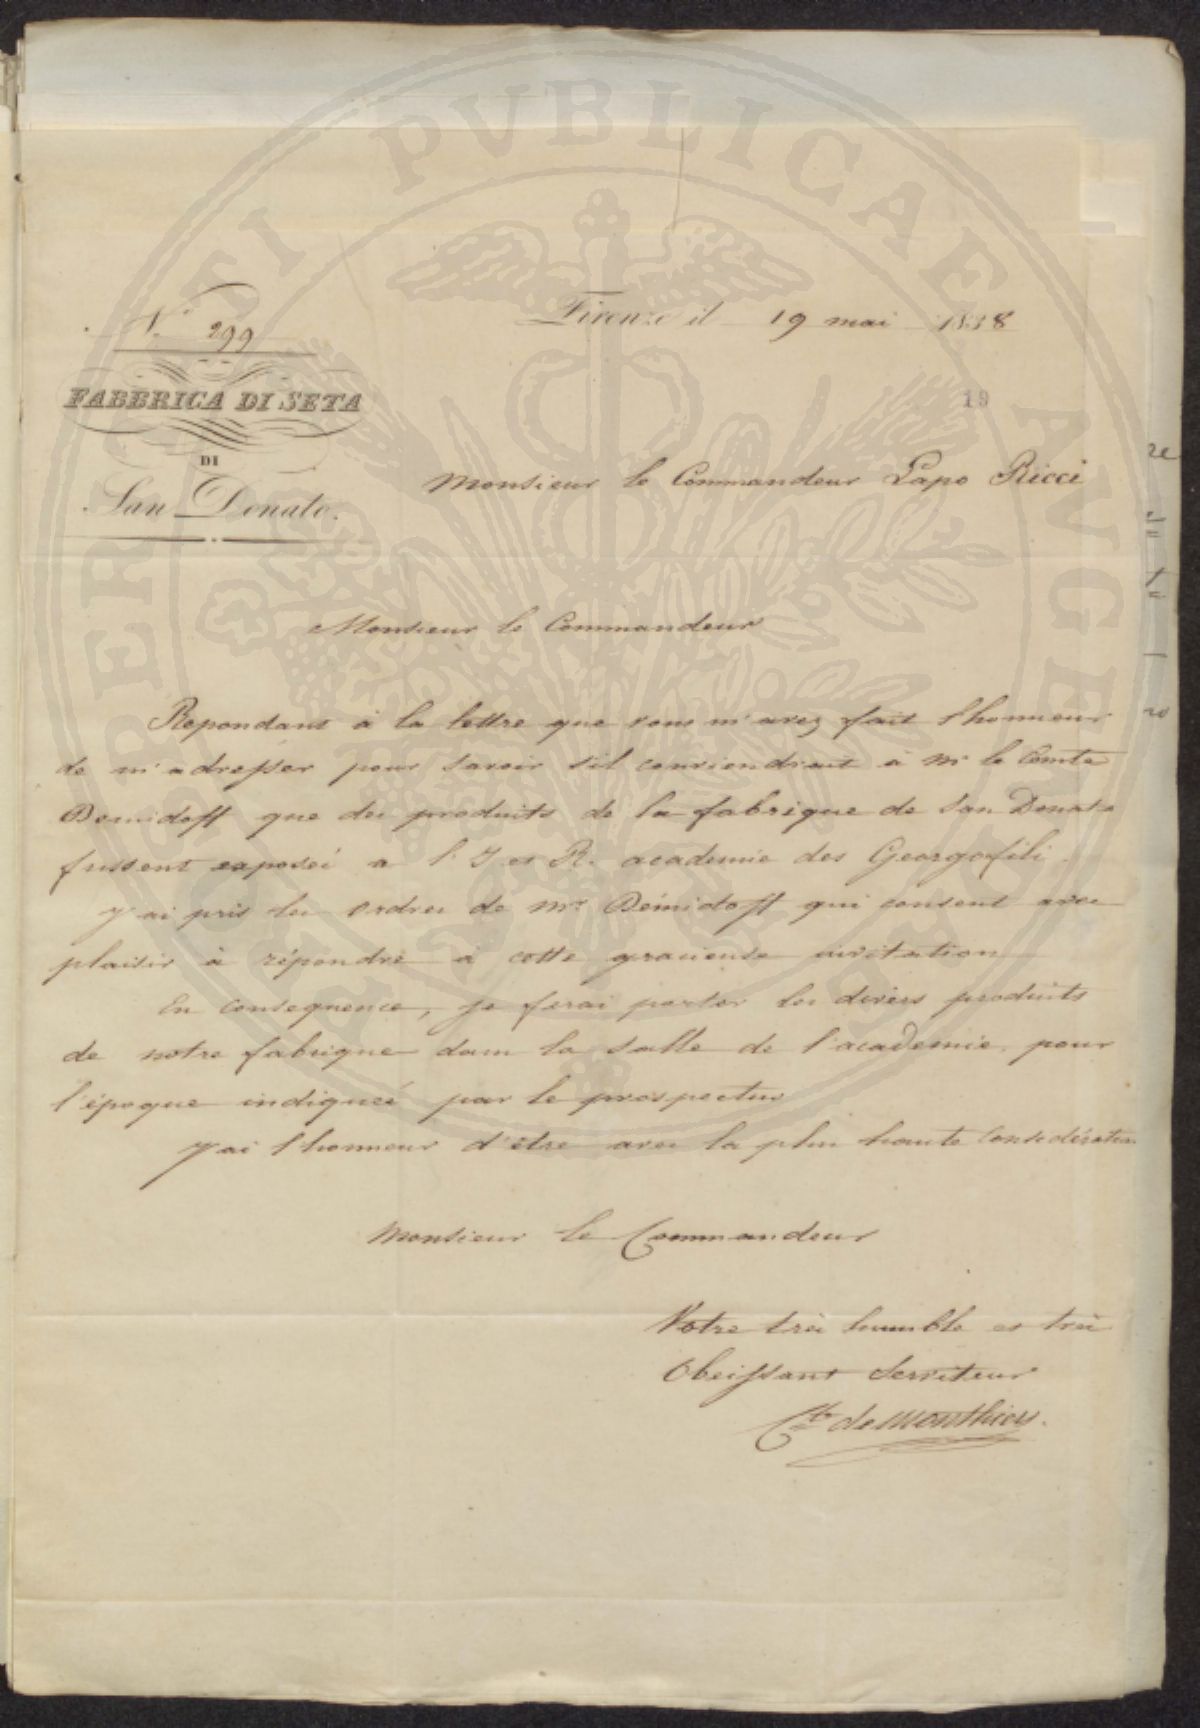 PROSPERITATI PVBLICAE AVGENDAE
N.° 299
Firenze il 19 mai 1838
FABBRICA DI SETA
19
DI
San Donato.
Monsieur le Commandeur Lapo Ricci
Monsieur le Commandeur
Repondant à la lettre que vous m'avez fait l'honneur
de m'adresser pour savoir s'il conviendrait à Mr le Comte
Demidoff que des produits de la fabrique de San Donato
fussent exposés a l'I et R. academie des Georgofili.
J'ai pris les ordres de Mr Démidoff qui consent avec
plaisir à répondre à cette gracieuse invitation
En consequence, je ferai porter les divers produits
de notre fabrique dans la salle de l'academie, pour
l'époque indiqueé par le prospectus
J'ai l'honneur d'être avec la plus haute Consideration
Monsieur le Commandeur
Votre très humble et très
Obeissant Serviteur
de Monthiers.